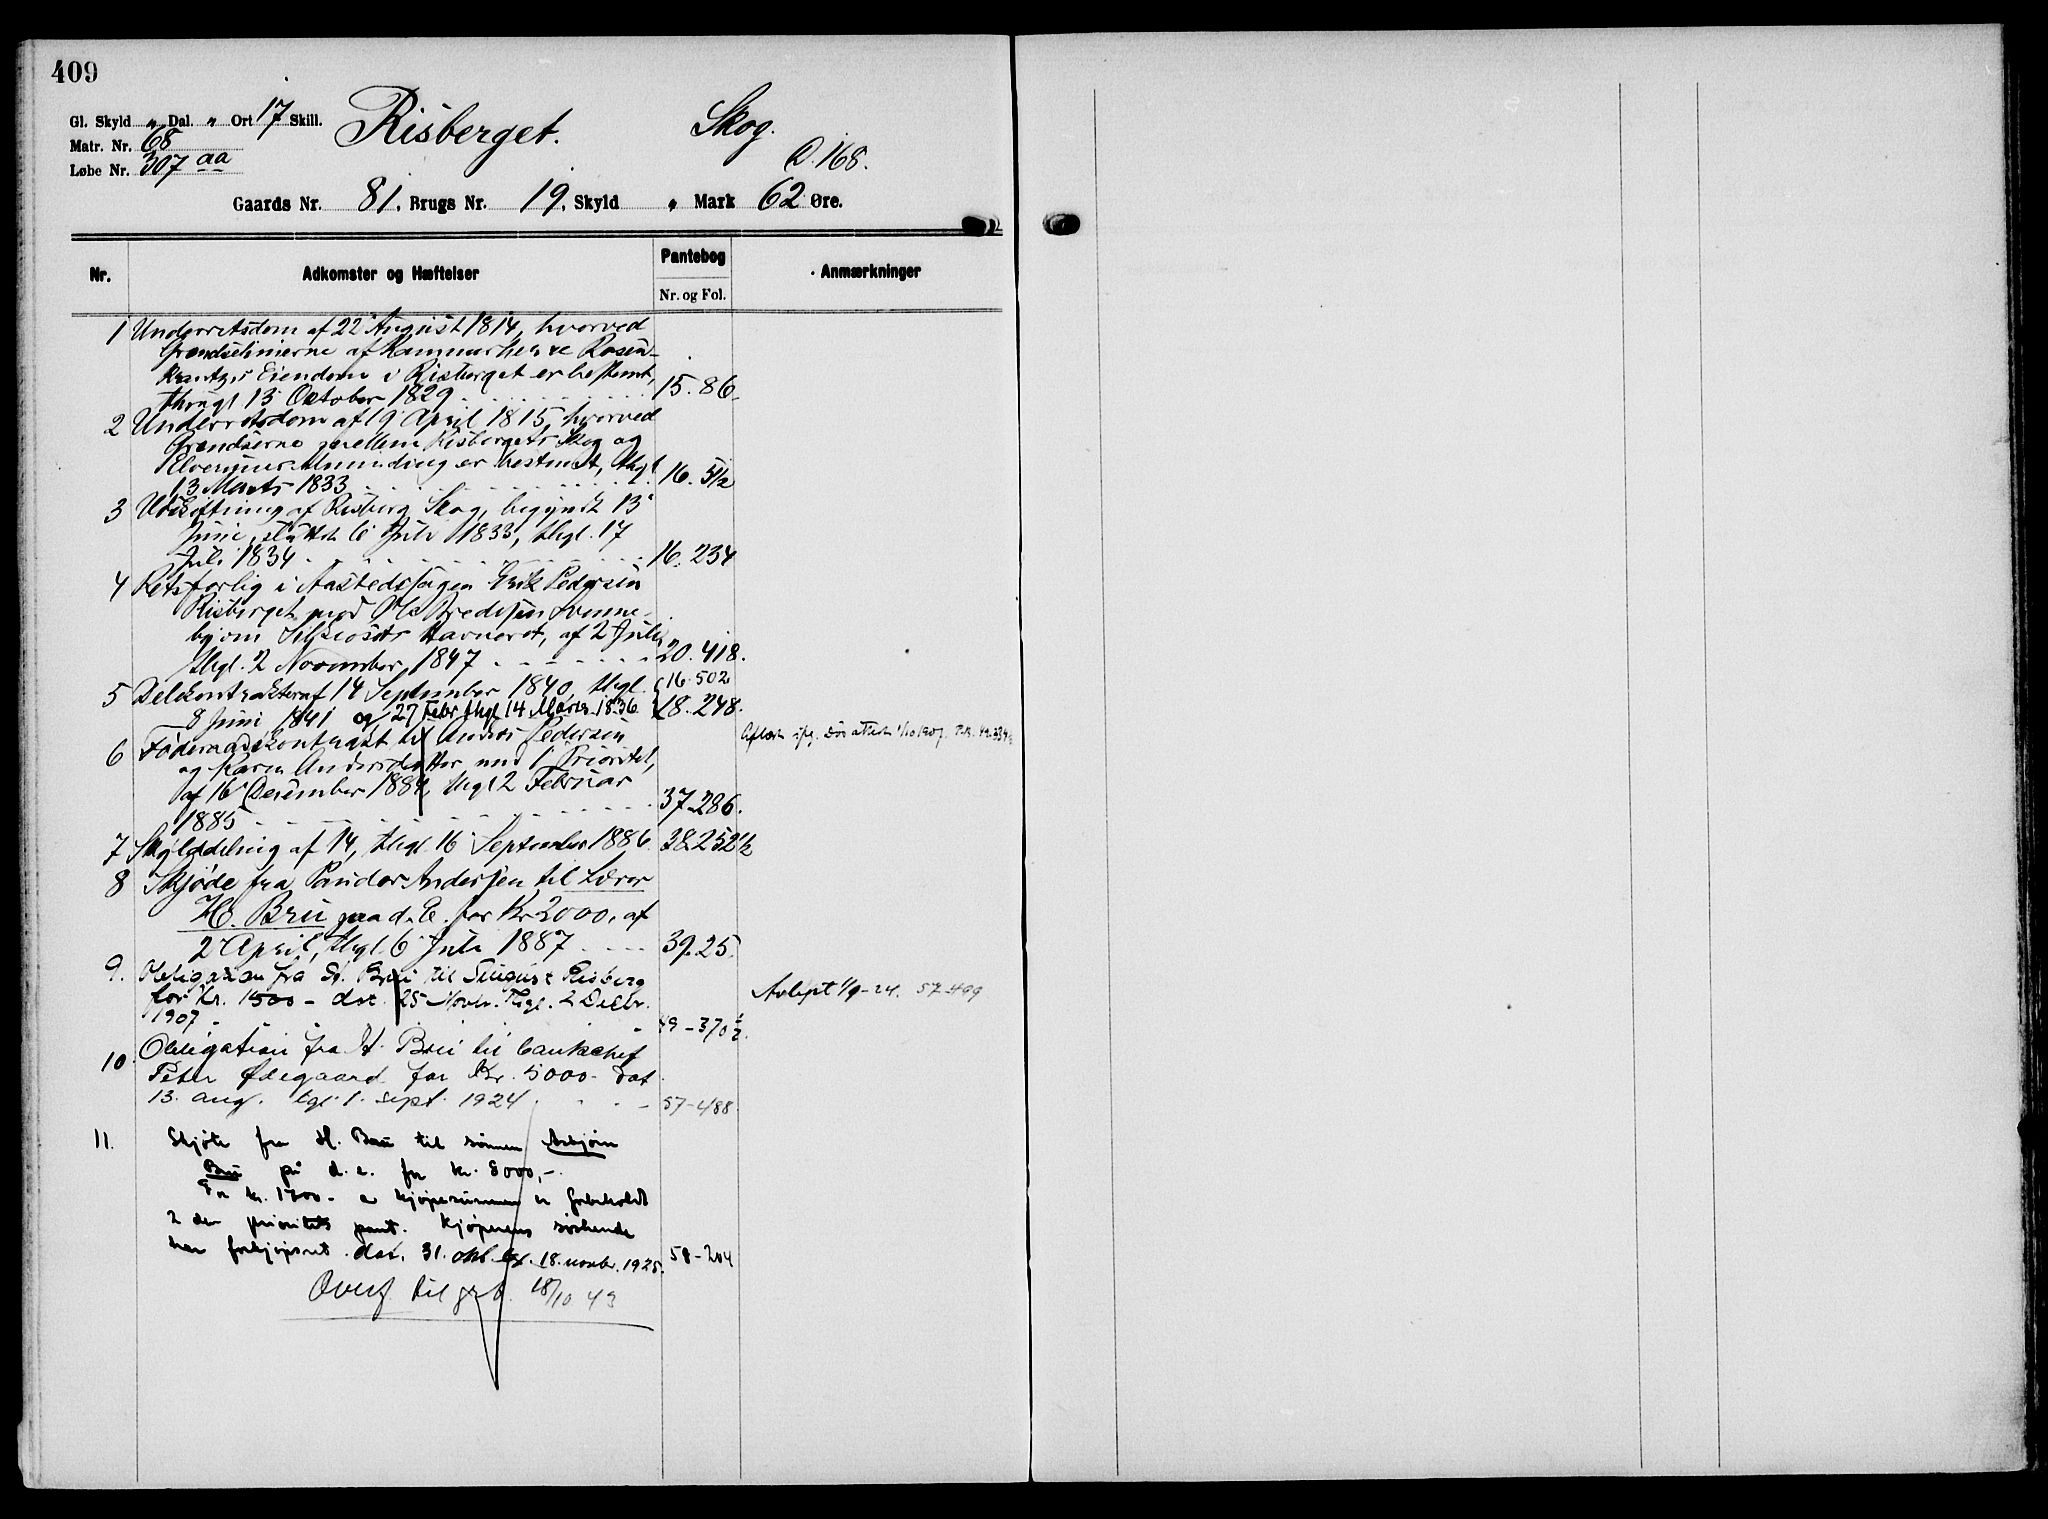 409
Gl. Skyld „ Dal. „ Ort 17 Skill. Risberget. Skog.
Matr. Nr. 68
Løbe Nr. 307 aa D. 168.
Gaards Nr. 81, Brugs Nr. 19, Skyld „ Mark 62 Øre.
Nr. Adkomster og Hæftelser Pantebog Anmærkninger
Nr. og Fol.
1 Underretsdom af 22 August 1814, hvorved
Grændselinierne af Kammerherre Rosen-
krantzes Eiendom i Risberget er bestemt,
thingl 13 Oktober 1829 15. 86.
2 Underretsdom af 19 April 1815, hvorved
Grændserne mellem Risbergets Skog og
Elverums Alminding er bestemt, thgl.
13 Marts 1833 16. 5 1/2
3 Udskiftning af Risberg Skog, begyndt 13
Juni, sluttet 6 Juli 1833, thgl. 17
Juli 1834 16. 234
4 Retsforlig i Aastedssagen Erik Pedersen
Risberget mod Ole Bredesen Svenne-
by om Havneret, af 2 Juli
thgl. 2 November 1847 20. 418.
5 Delekontrakter af 14 September 1840, thgl. 16. 502
8 Juni 1841 og 27 Febr thgl 14 Marts 1836 18. 248.
6 Føderaadskontrakt til Anders Pedersen Aflæst ifg. dødsattest 1/10 1907. P.b. 49. 334
og Karen Andersdatter med 1 Prioritet,
af 16 December 1884, thgl 2 Februar
1885 37. 286.
7 Skylddeling af 14, thgl 16 September 1886 38. 252 1/2
8 Skjøde fra Pander Andersen til Lærer
H. Bru paa d. E. for Kr 2000, af
2 April, thgl. 6 Juli 1887 39. 25.
9. Obligation fra H. Bru til August Risberg
for Kr. 1500 – dat. 25 Novbr. Thgl. 2 Decbr. Avlyst 1/9-24. 57-499
1907 49 – 370 1/2.
10. Obligation fra H. Bru til banksjef
Peter Ødegaard for Kr. 5000 – dat
13. aug. tgl 1. sept. 1924 57–488.
11. Skjøte fra H. Bru til sønnen Asbjørn
Bru på d. e. for kr. 8000,–.
For kr. 1700 – av kjøpesummen er forbeholdt
2 den prioritets pant. Kjøperens søskende
har forkjøpsret. dat. 31. okt. tgl. 18. novbr. 1925. 58–204
Overf. til grb. 18/10 43